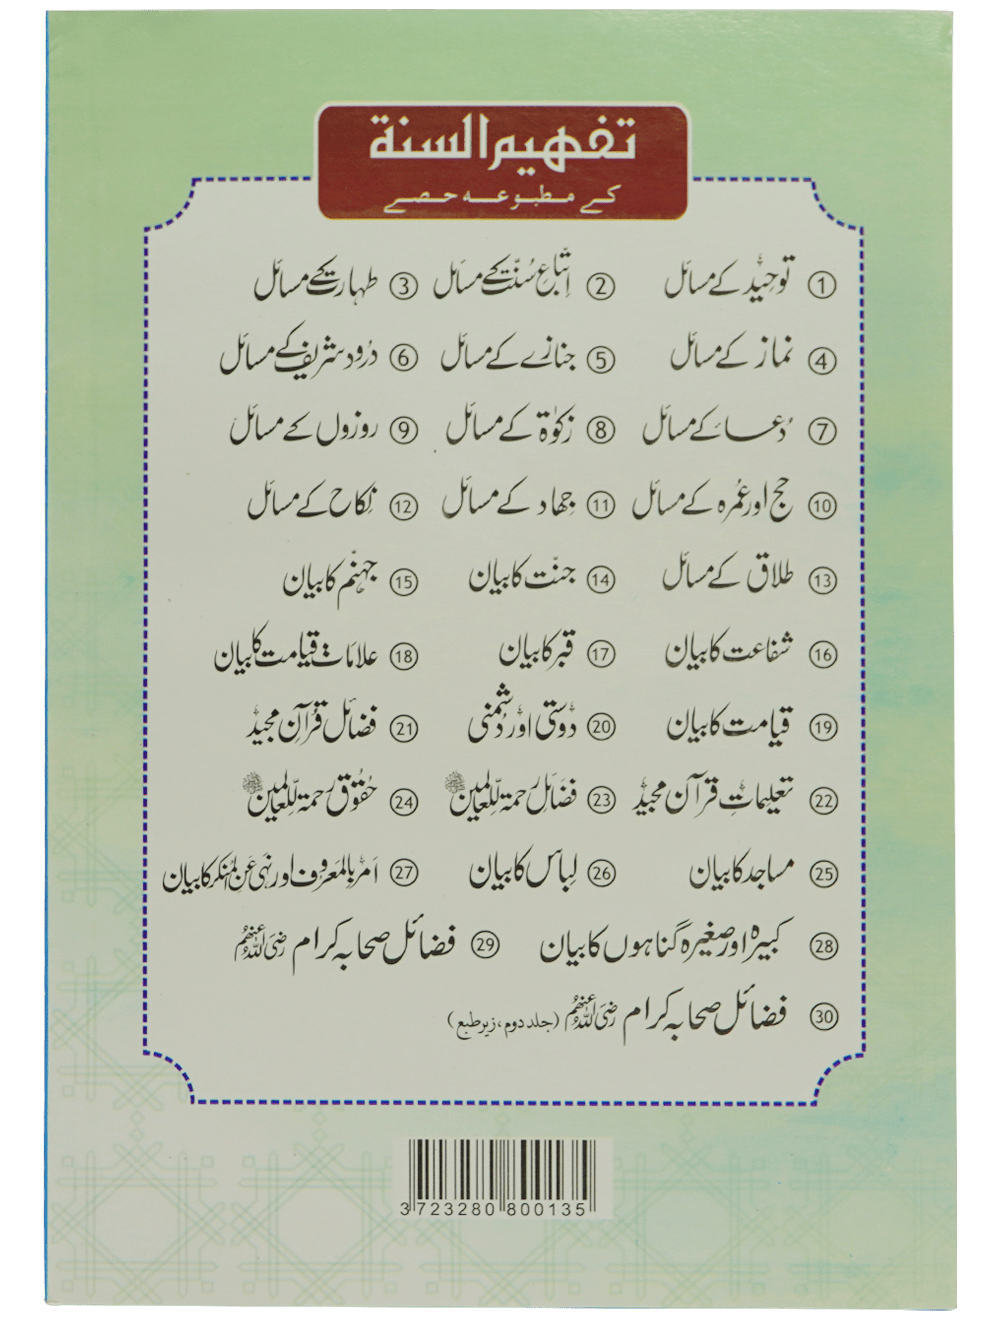 تفہیم السنۃ
کے مطبوعہ حصے
① توحید کے مسائل ② اتباع سُنّت کے مسائل ③ طہارت کے مسائل
④ نماز کے مسائل ⑤ جنازے کے مسائل ⑥ درود شریف کے مسائل
⑦ دُعا کے مسائل ⑧ زکوٰۃ کے مسائل ⑨ روزوں کے مسائل
⑩ حج اور عُمرہ کے مسائل ⑪ جہاد کے مسائل ⑫ نکاح کے مسائل
⑬ طلاق کے مسائل ⑭ جنّت کا بیان ⑮ جہنّم کا بیان
⑯ شفاعت کا بیان ⑰ قبر کا بیان ⑱ علاماتِ قیامت کا بیان
⑲ قیامت کا بیان ⑳ دوستی اور دُشمنی ㉑ فضائل قُرآن مجید
㉒ تعلیماتِ قرآن مجید ㉓ فضائل رحمۃ لّلعالمین ﷺ ㉔ حقُوق رحمۃ لّلعالمین ﷺ
㉕ مساجد کا بیان ㉖ لِباس کا بیان ㉗ امر بالمعروف اور نہی عن المُنکر کا بیان
㉘ کبیرہ اور صغیرہ گناہوں کا بیان ㉙ فضائل صحابہ کرام رضی اللہ عنہم
㉚ فضائل صحابہ کرام رضی اللہ عنہم (جلد دوم، زیر طبع)
3723280800135